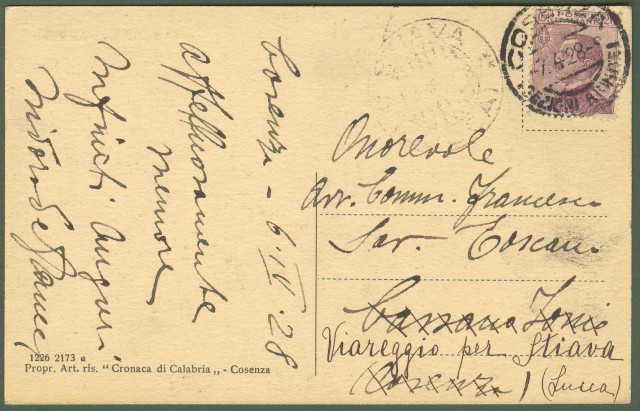 Cosenza - 6.IV.28
affettuosamente
memore
Infiniti auguri
Onorevole
Avv. Comm. Francesco
Sav. Toscano
Cassano Jonio
Viareggio per Stiava
Cosenza
(Lucca)
COSENZA
7.4.28
STIAVA
1226 2173 e
Propr. Art. ris. "Cronaca di Calabria„ - Cosenza